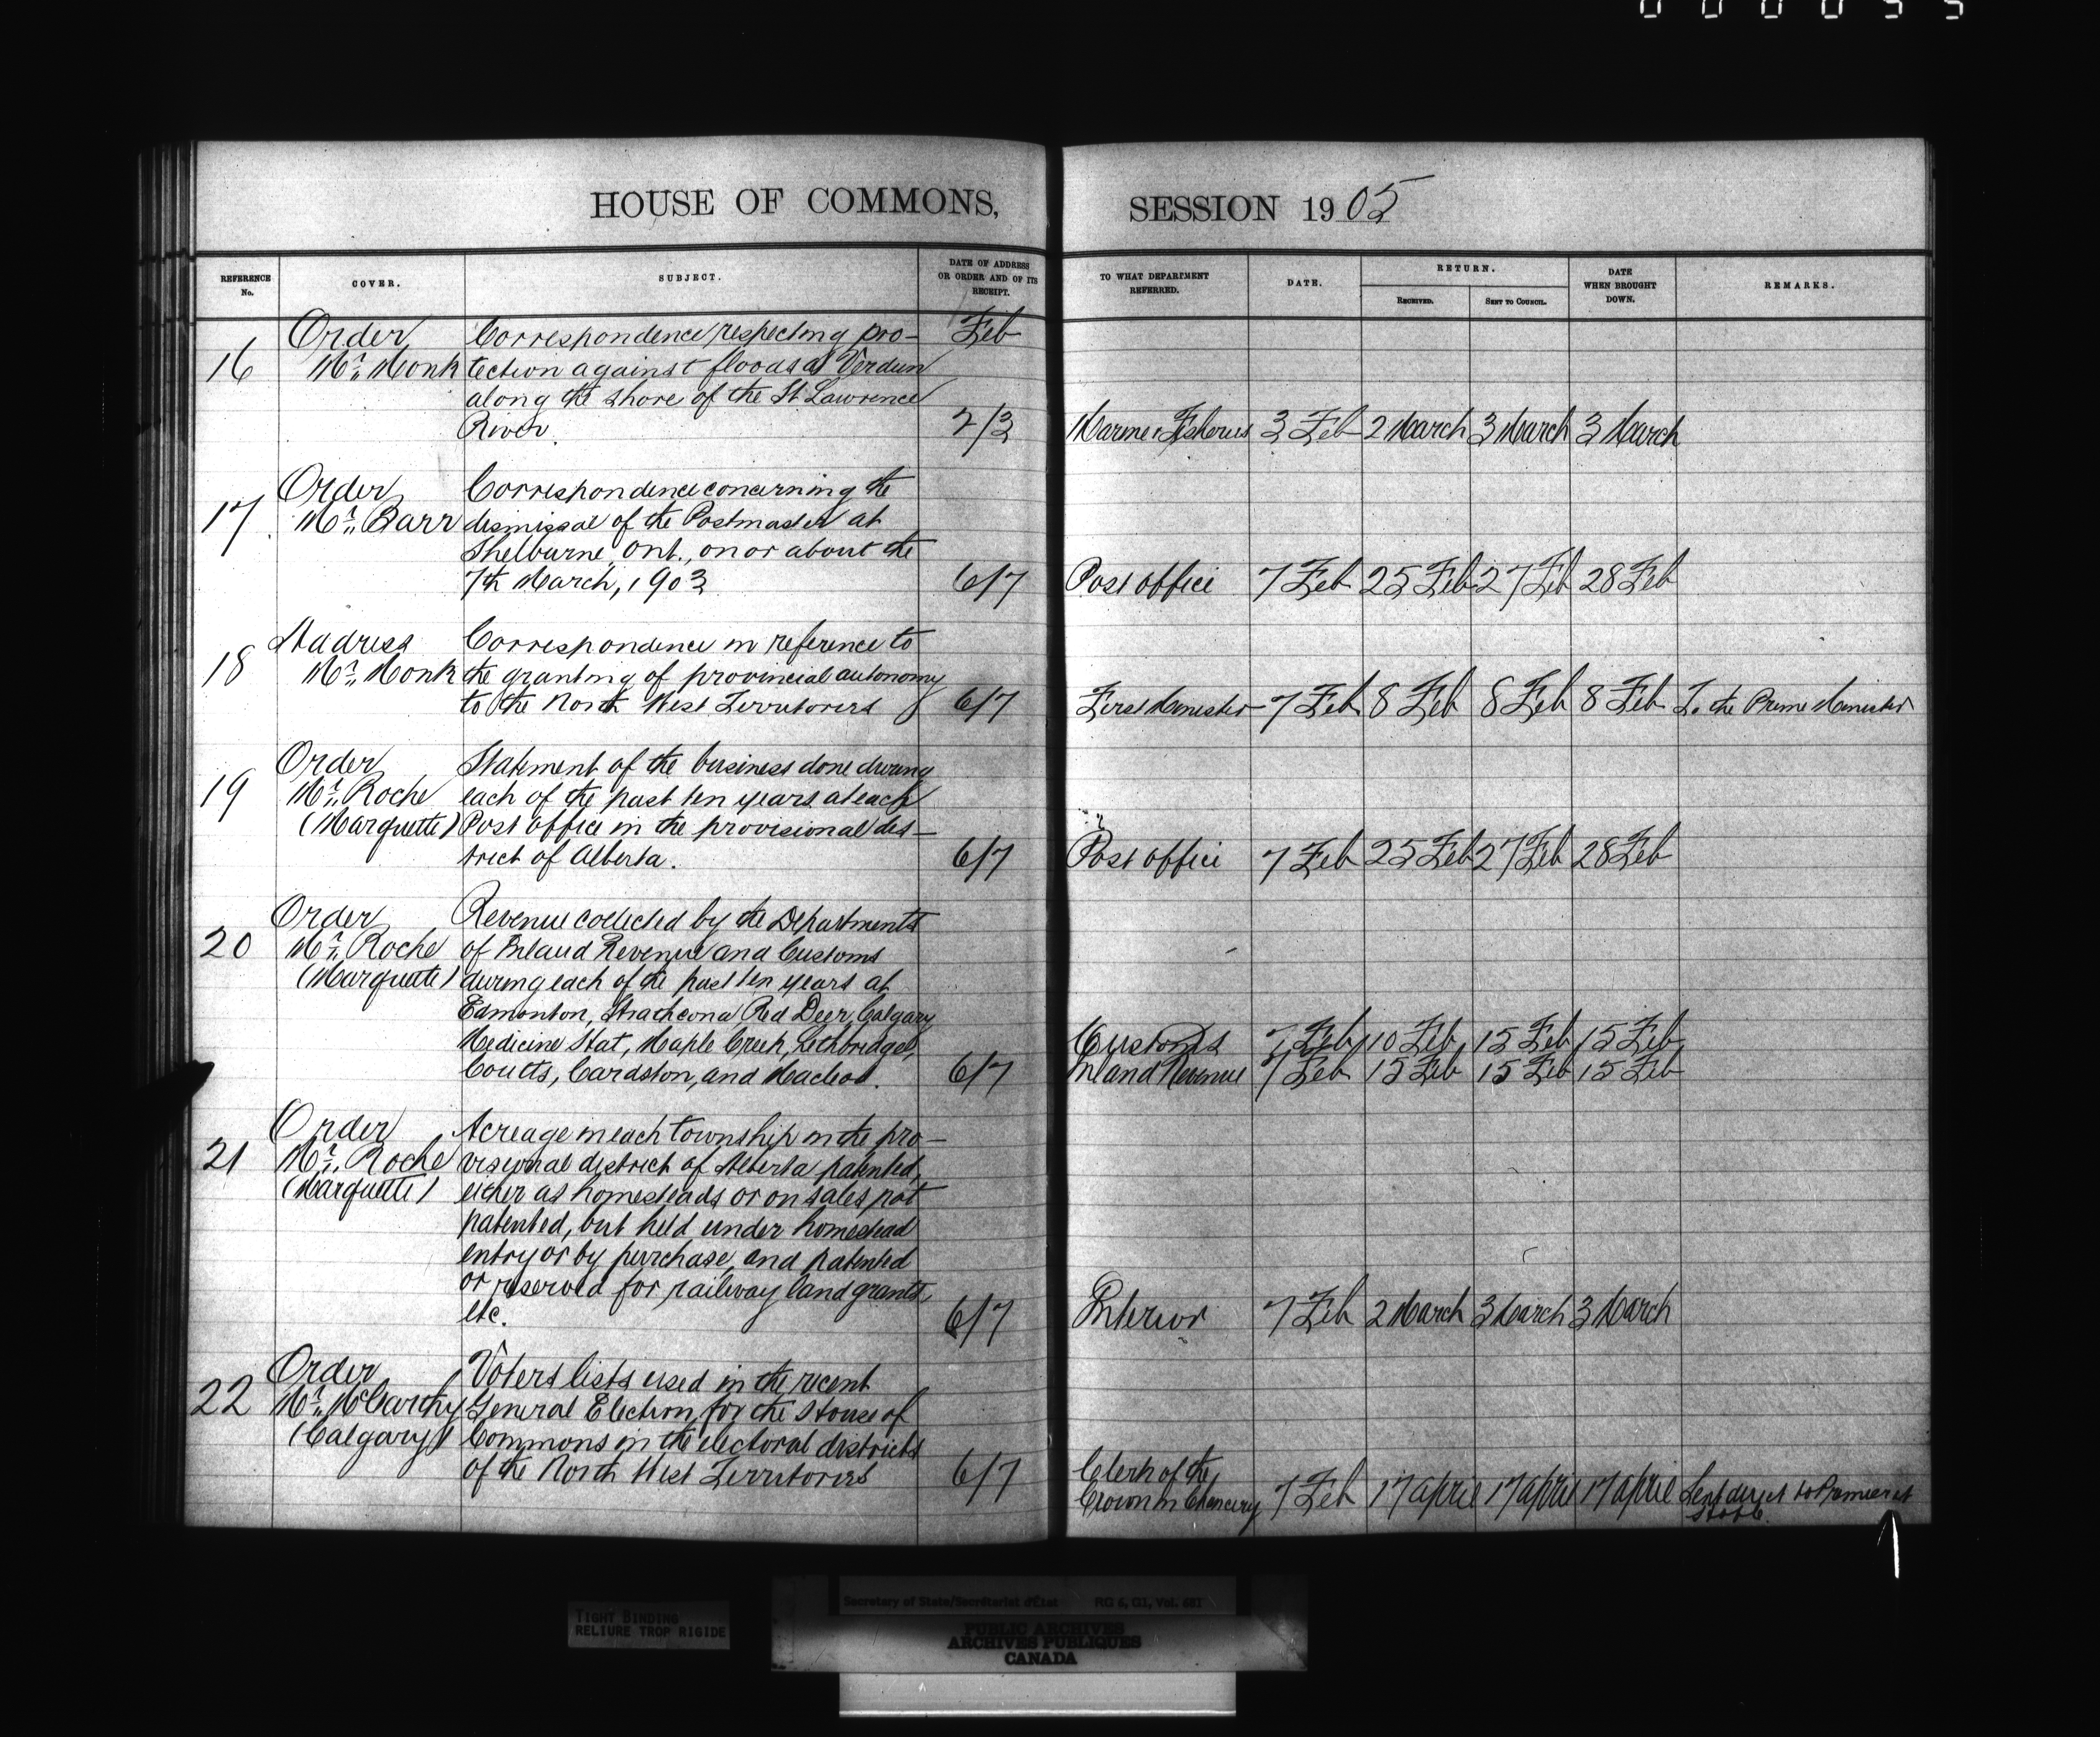 000055
HOUSE OF COMMONS,
SESSION 1905
REFERENCE No.
COVER.
SUBJECT.
DATE OF ADDRESS OR ORDER AND OF ITS RECEIPT.
TO WHAT DEPARTMENT REFERRED.
DATE.
RETURN.
RECEIVED.
SENT TO COUNCIL.
DATE WHEN BROUGHT DOWN.
REMARKS.
Order Correspondence respecting pro- Feb
16 Mr. Monk tection against floods at Verdun
along the shore of the St Lawrence
River. 2/3 Marine & Fisheries 3 Feb 2 March 3 March 3 March
Order Correspondence concerning the
17 Mr. Barr dismissal of the Postmaster at
Shelburne, Ont., on or about the
7th March, 1903 6/7 Post office 7 Feb 25 Feb 27 Feb 28 Feb
Address Correspondence in reference to
18 Mr. Monk the granting of provincial autonomy
to the North West Territories 6/7 First Minister 7 Feb 8 Feb 8 Feb 8 Feb To the Prime Minister
Order Statement of the business done during
19 Mr. Roche each of the past ten years at each
(Marquette) Post office in the provisional dis-
trict of Alberta. 6/7 Post office 7 Feb 25 Feb 27 Feb 28 Feb
Order Revenue collected by the Departments
20 Mr. Roche of Inland Revenue and Customs
(Marquette) during each of the past ten years at
Edmonton, Strathcona Red Deer, Calgary
Medicine Hat, Maple Creek, Lethbridge, Customs 7 Feb 10 Feb 15 Feb 15 Feb
Coutts, Cardston, and Macleod. 6/7 Inland Revenue 7 Feb 15 Feb 15 Feb 15 Feb
Order Acreage in each township in the pro-
21 Mr. Roche visional district of Alberta patented,
(Marquette) either as homesteads or on sales, not
patented, but held under homestead
entry or by purchase, and patented
or reserved for railway land grants,
etc. 6/7 Interior 7 Feb 2 March 3 March 3 March
Order Voters lists used in the recent
22 Mr. McCarthy General Election, for the House of
(Calgary) Commons in the electoral districts
of the North West Territories 6/7 Clerk of the
Crown in Chancery 7 Feb 17 april 17 april 17 april Sent direct to Premier at
TIGHT BINDING
RELIURE TROP RIGIDE
Secretary of State/Secrétariat d'État RG 6, G1, Vol. 681
PUBLIC ARCHIVES
ARCHIVES PUBLIQUES
CANADA